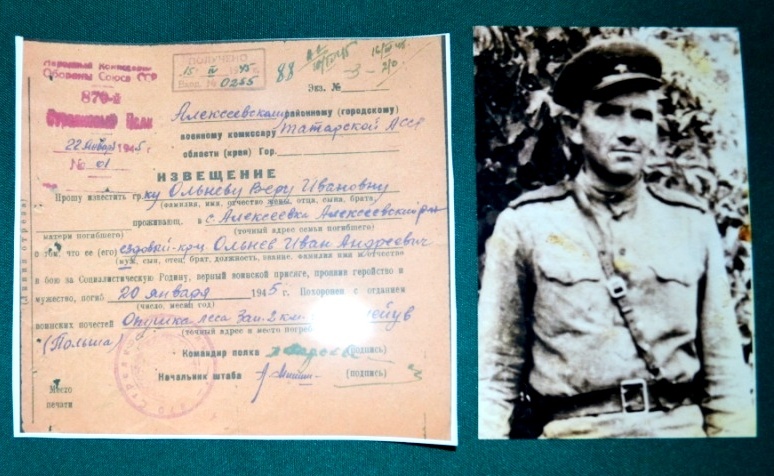 Народный Комиссариат
Обороны Союза ССР
870-й
Стрелковый Полк
22 января 1945
№ 01
ПОЛУЧЕНО
15 IV 1945
Вход. № 0255
88
Экз. №
Алексеевскому районному (городскому)
военному комиссару Татарской АССР
области (края) Гор.
ИЗВЕЩЕНИЕ
Прошу известить гр-ку Ольневу Веру Ивановну
(фамилия, имя, отчество жены, отца, сына, брата,
проживающ. в с. Алексеевка Алексеевский р-н
матери погибшего) (точный адрес семьи погибшего)
о том, что ее (его) ездовой-кр-ц Ольнев Иван Андреевич
(муж, сын, отец, брат, должность, звание, фамилия имя и отчество
в бою за Социалистическую Родину, верный воинской присяге, проявив геройство и
мужество, погиб 20 января 1945 г. Похоронен с отданием
(число, месяц год)
воинских почестей Опушка леса Зап. 2 км.
(точный адрес и место
(Польша)
Командир полка (подпись)
Начальник штаба (подпись)
Место
печати
Линия отреза